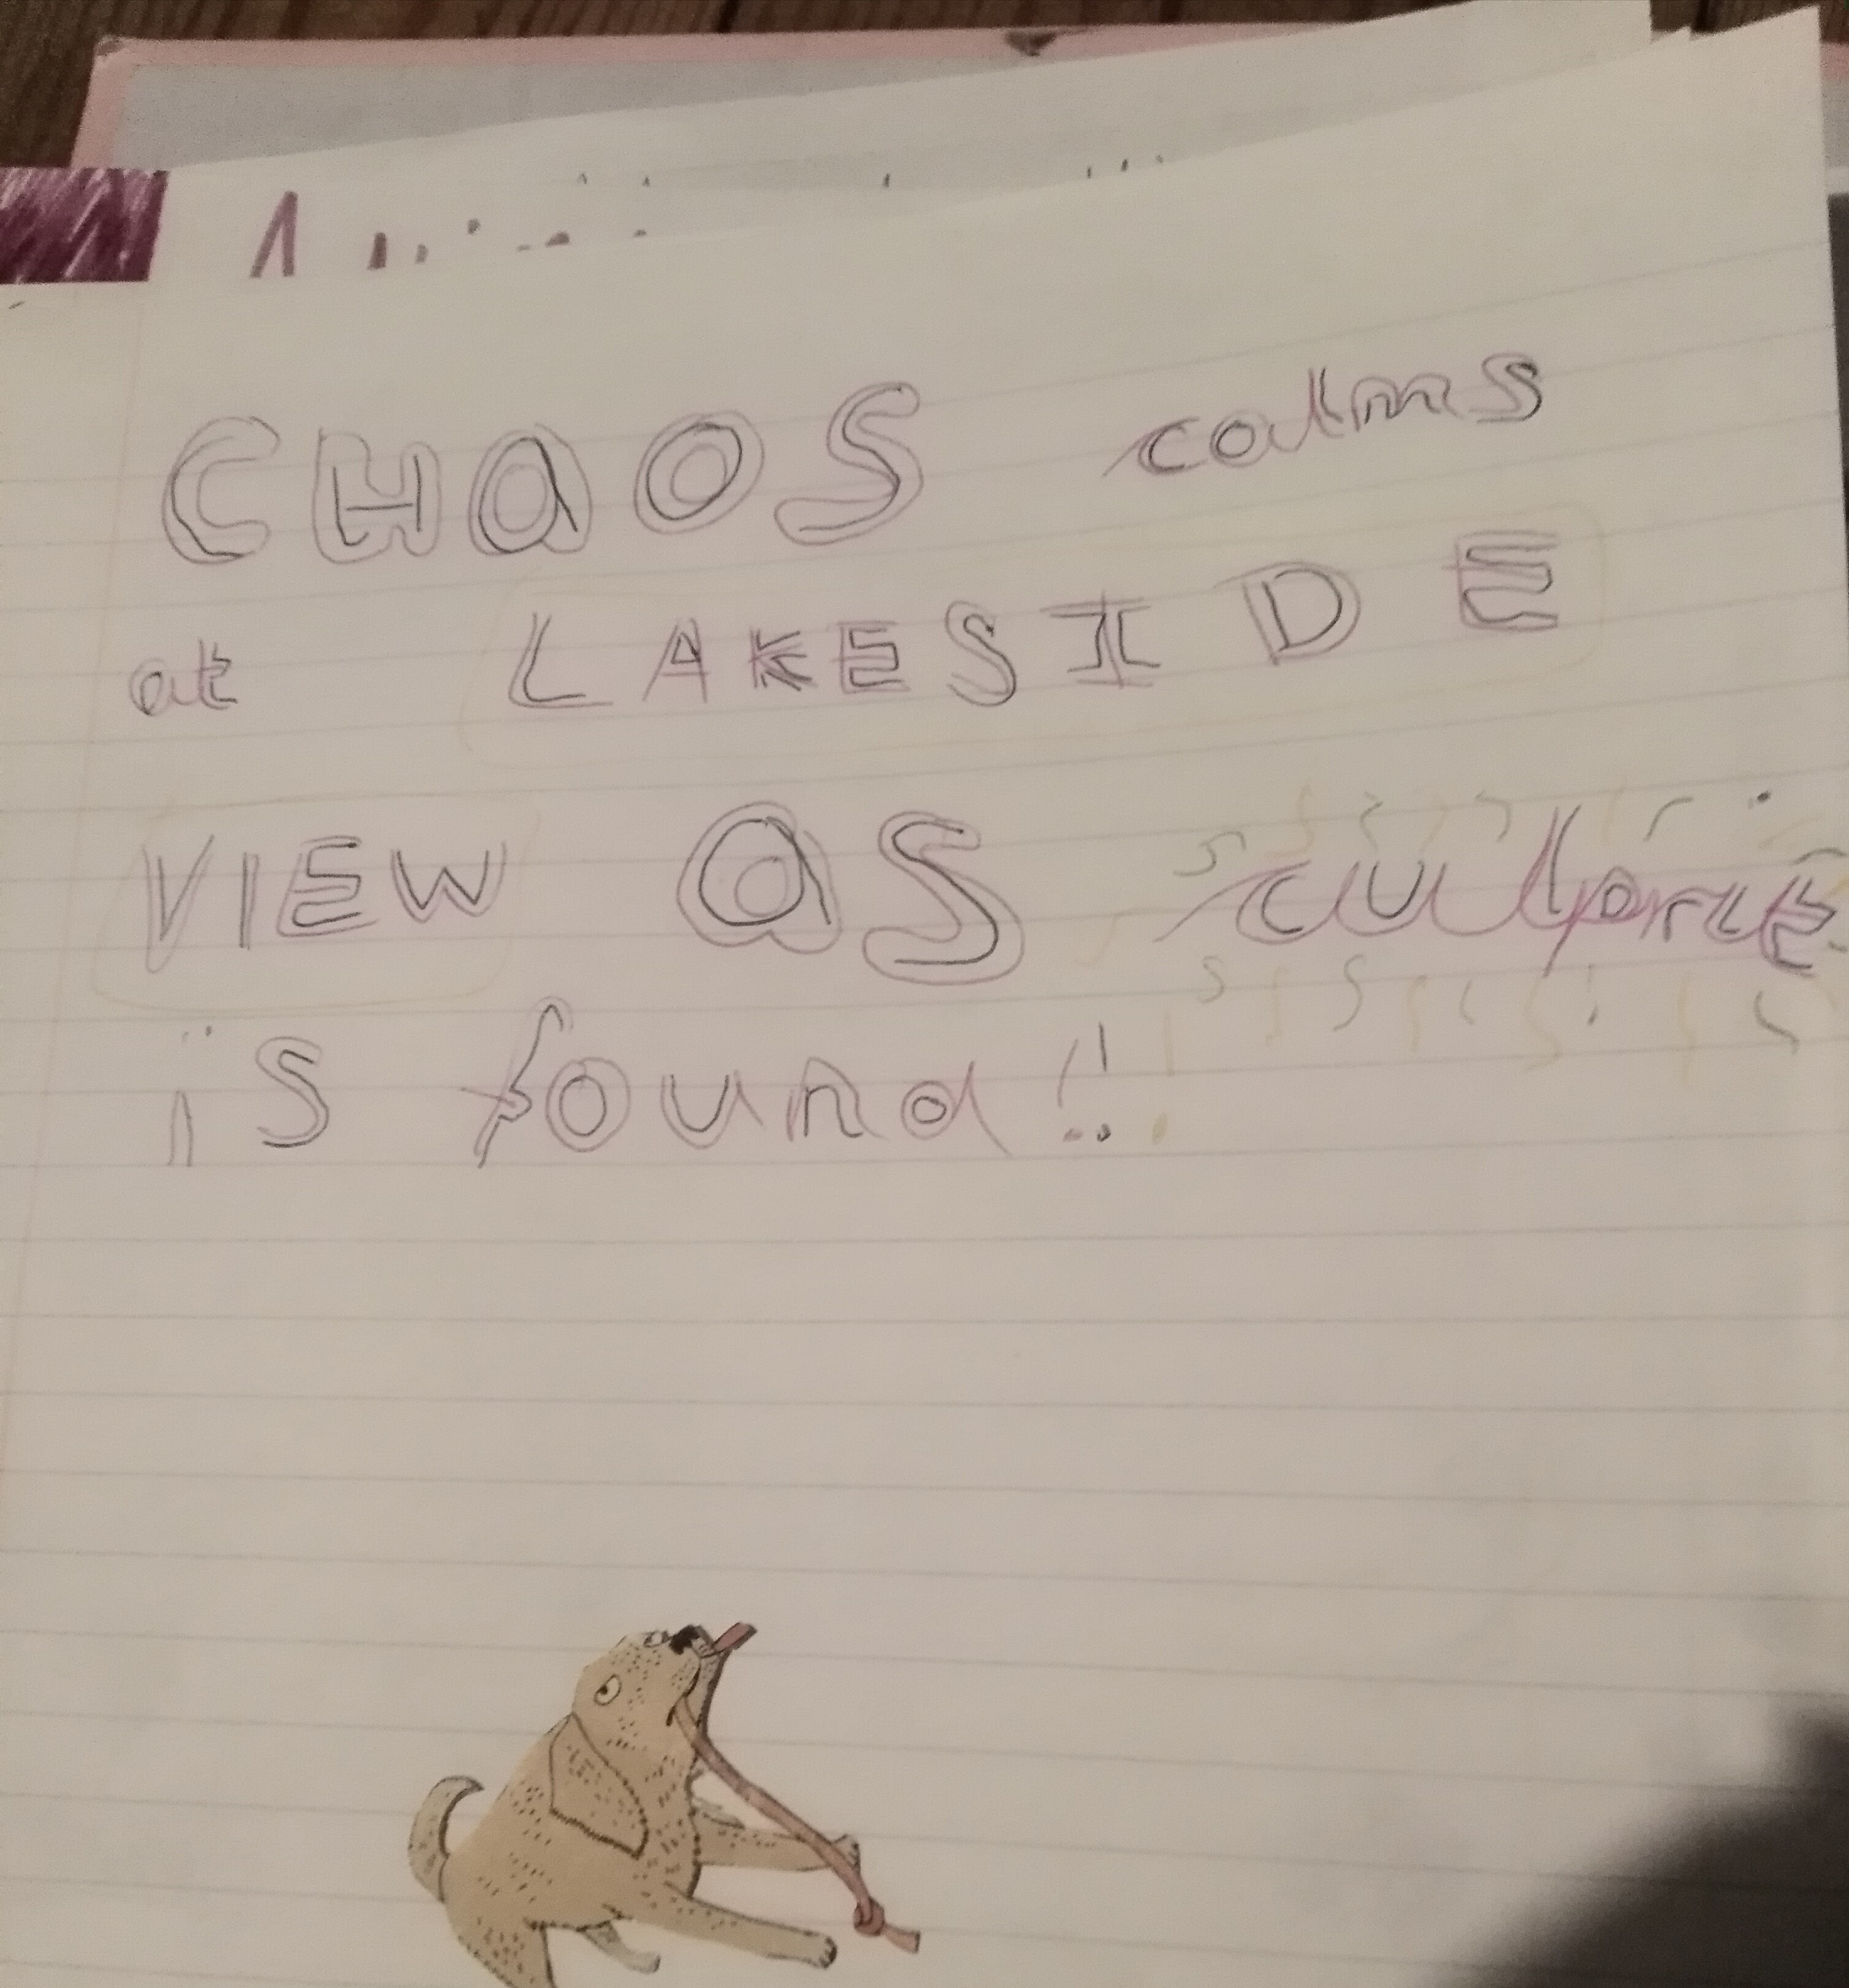 CHaOS calms
at LAKESIDE
VIEW aS culprit
is found!!